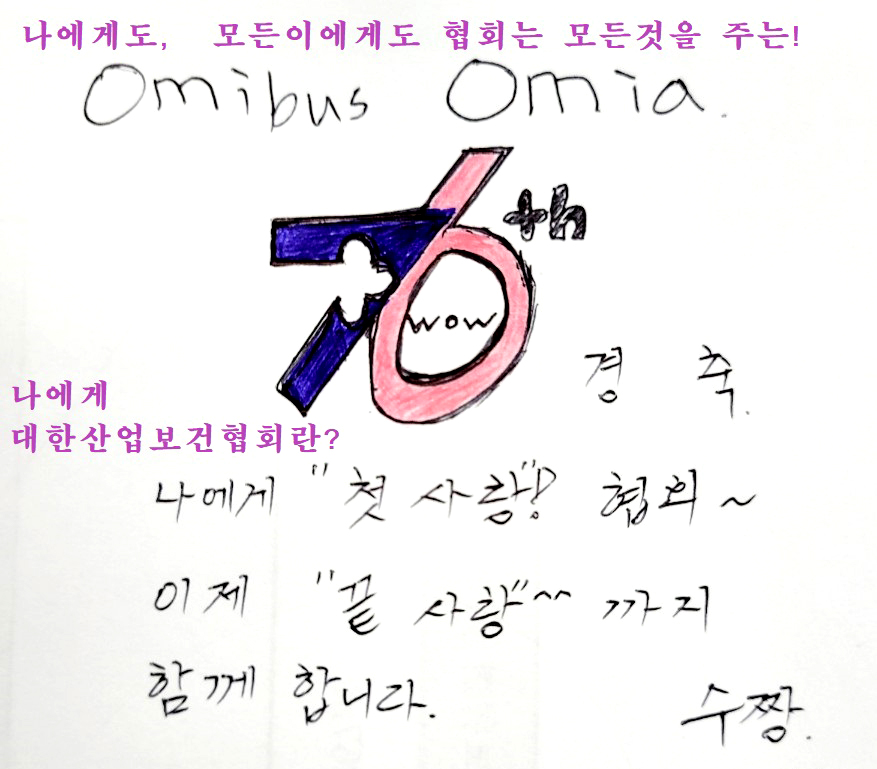 나에게도, 모든이에게도 협회는 모든것을 주는!
Omibus Omia.
76th
wow
경 축.
나에게
대한산업보건협회란?
나에게 "첫 사랑"! 협회~
이제 "끝 사랑"^^ 까지
함께 합니다.
수짱.